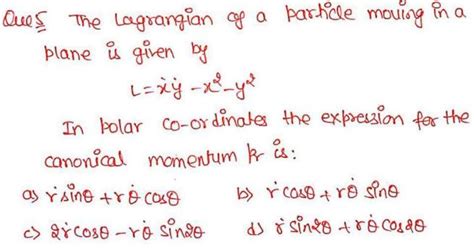 Ques The Lagrangian of a particle moving in a
plane is given by
L = ẋẏ - x² - y²
In polar co-ordinates the expression for the
canonical momentum Pr is:
a) ṙ sinθ + r θ̇ cosθ b) ṙ cosθ + r θ̇ sinθ
c) 2ṙ cosθ - r θ̇ sin2θ d) ṙ sin2θ + r θ̇ cos2θ